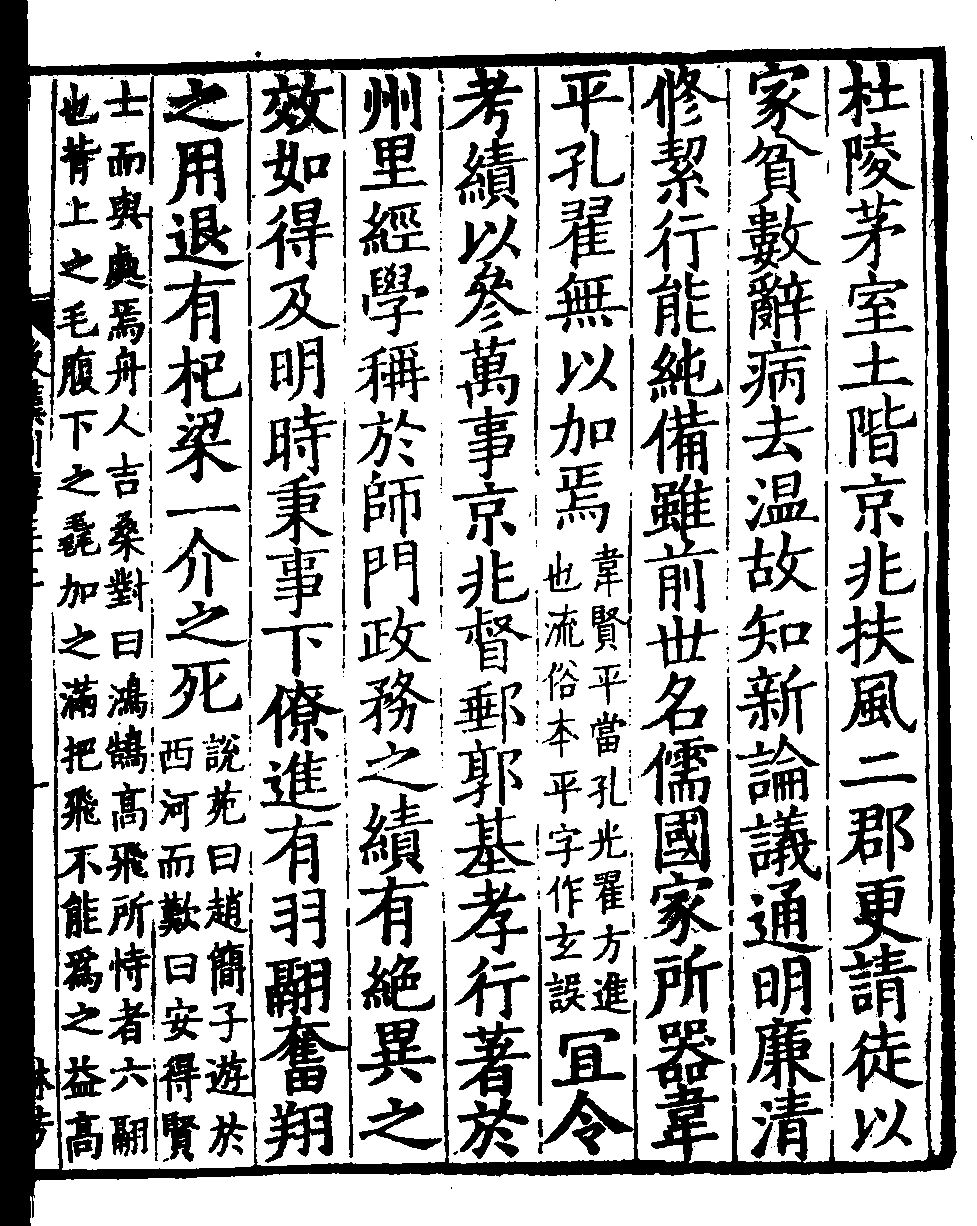 杜陵茅室土階京兆扶風二郡更請徒以
家貧數辭病去温故知新論議通明廉清
修絜行能純備雖前世名儒國家所器韋
平孔翟無以加焉
韋賢平當孔光翟方進
也流俗本平字作玄誤
宜令
考績以參萬事京兆督郵郭基孝行著於
州里經學稱於師門政務之績有絶異之
效如得及明時秉事下僚進有羽翮奮翔
之用退有杞梁一介之死
說苑曰趙簡子遊於
西河而歎曰安得賢
士而與處焉舟人吉桑對曰鴻鵠高飛所恃者六翮
也背上之毛腹下之毳加之滿把飛不能爲之益高